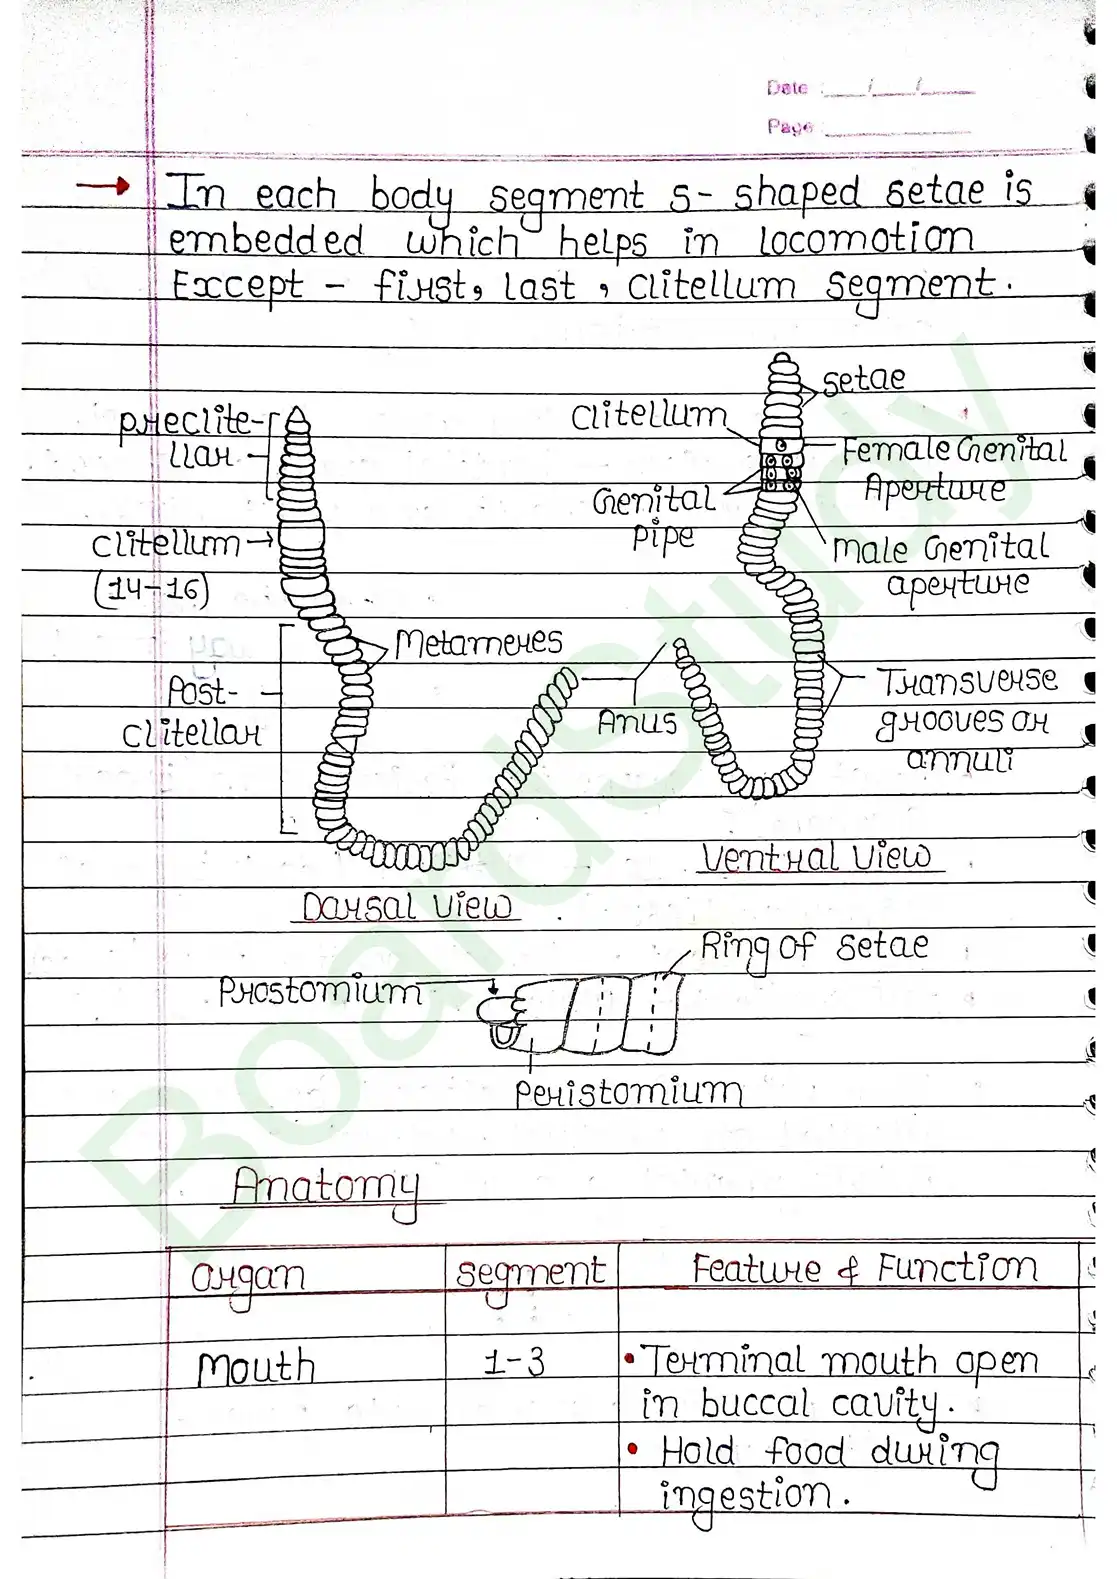 Date : __/__/__
Page : ______
→ In each body segment s- shaped setae is
embedded which helps in locomotion
Except - first, last , clitellum segment.
setae
preclite-
llar
Clitellum
Female Genital
Aperture
Genital
pipe
clitellum →
(14-16)
male Genital
aperture
Metameres
Post-
clitellar
Anus
Transverse
grooves or
annuli
Ventral view
Dorsal view
Ring of setae
Prostomium
Peristomium
Anatomy
organ segment Feature & Function
Mouth 1-3 • Terminal mouth open
in buccal cavity.
• Hold food during
ingestion.
BoardStudy